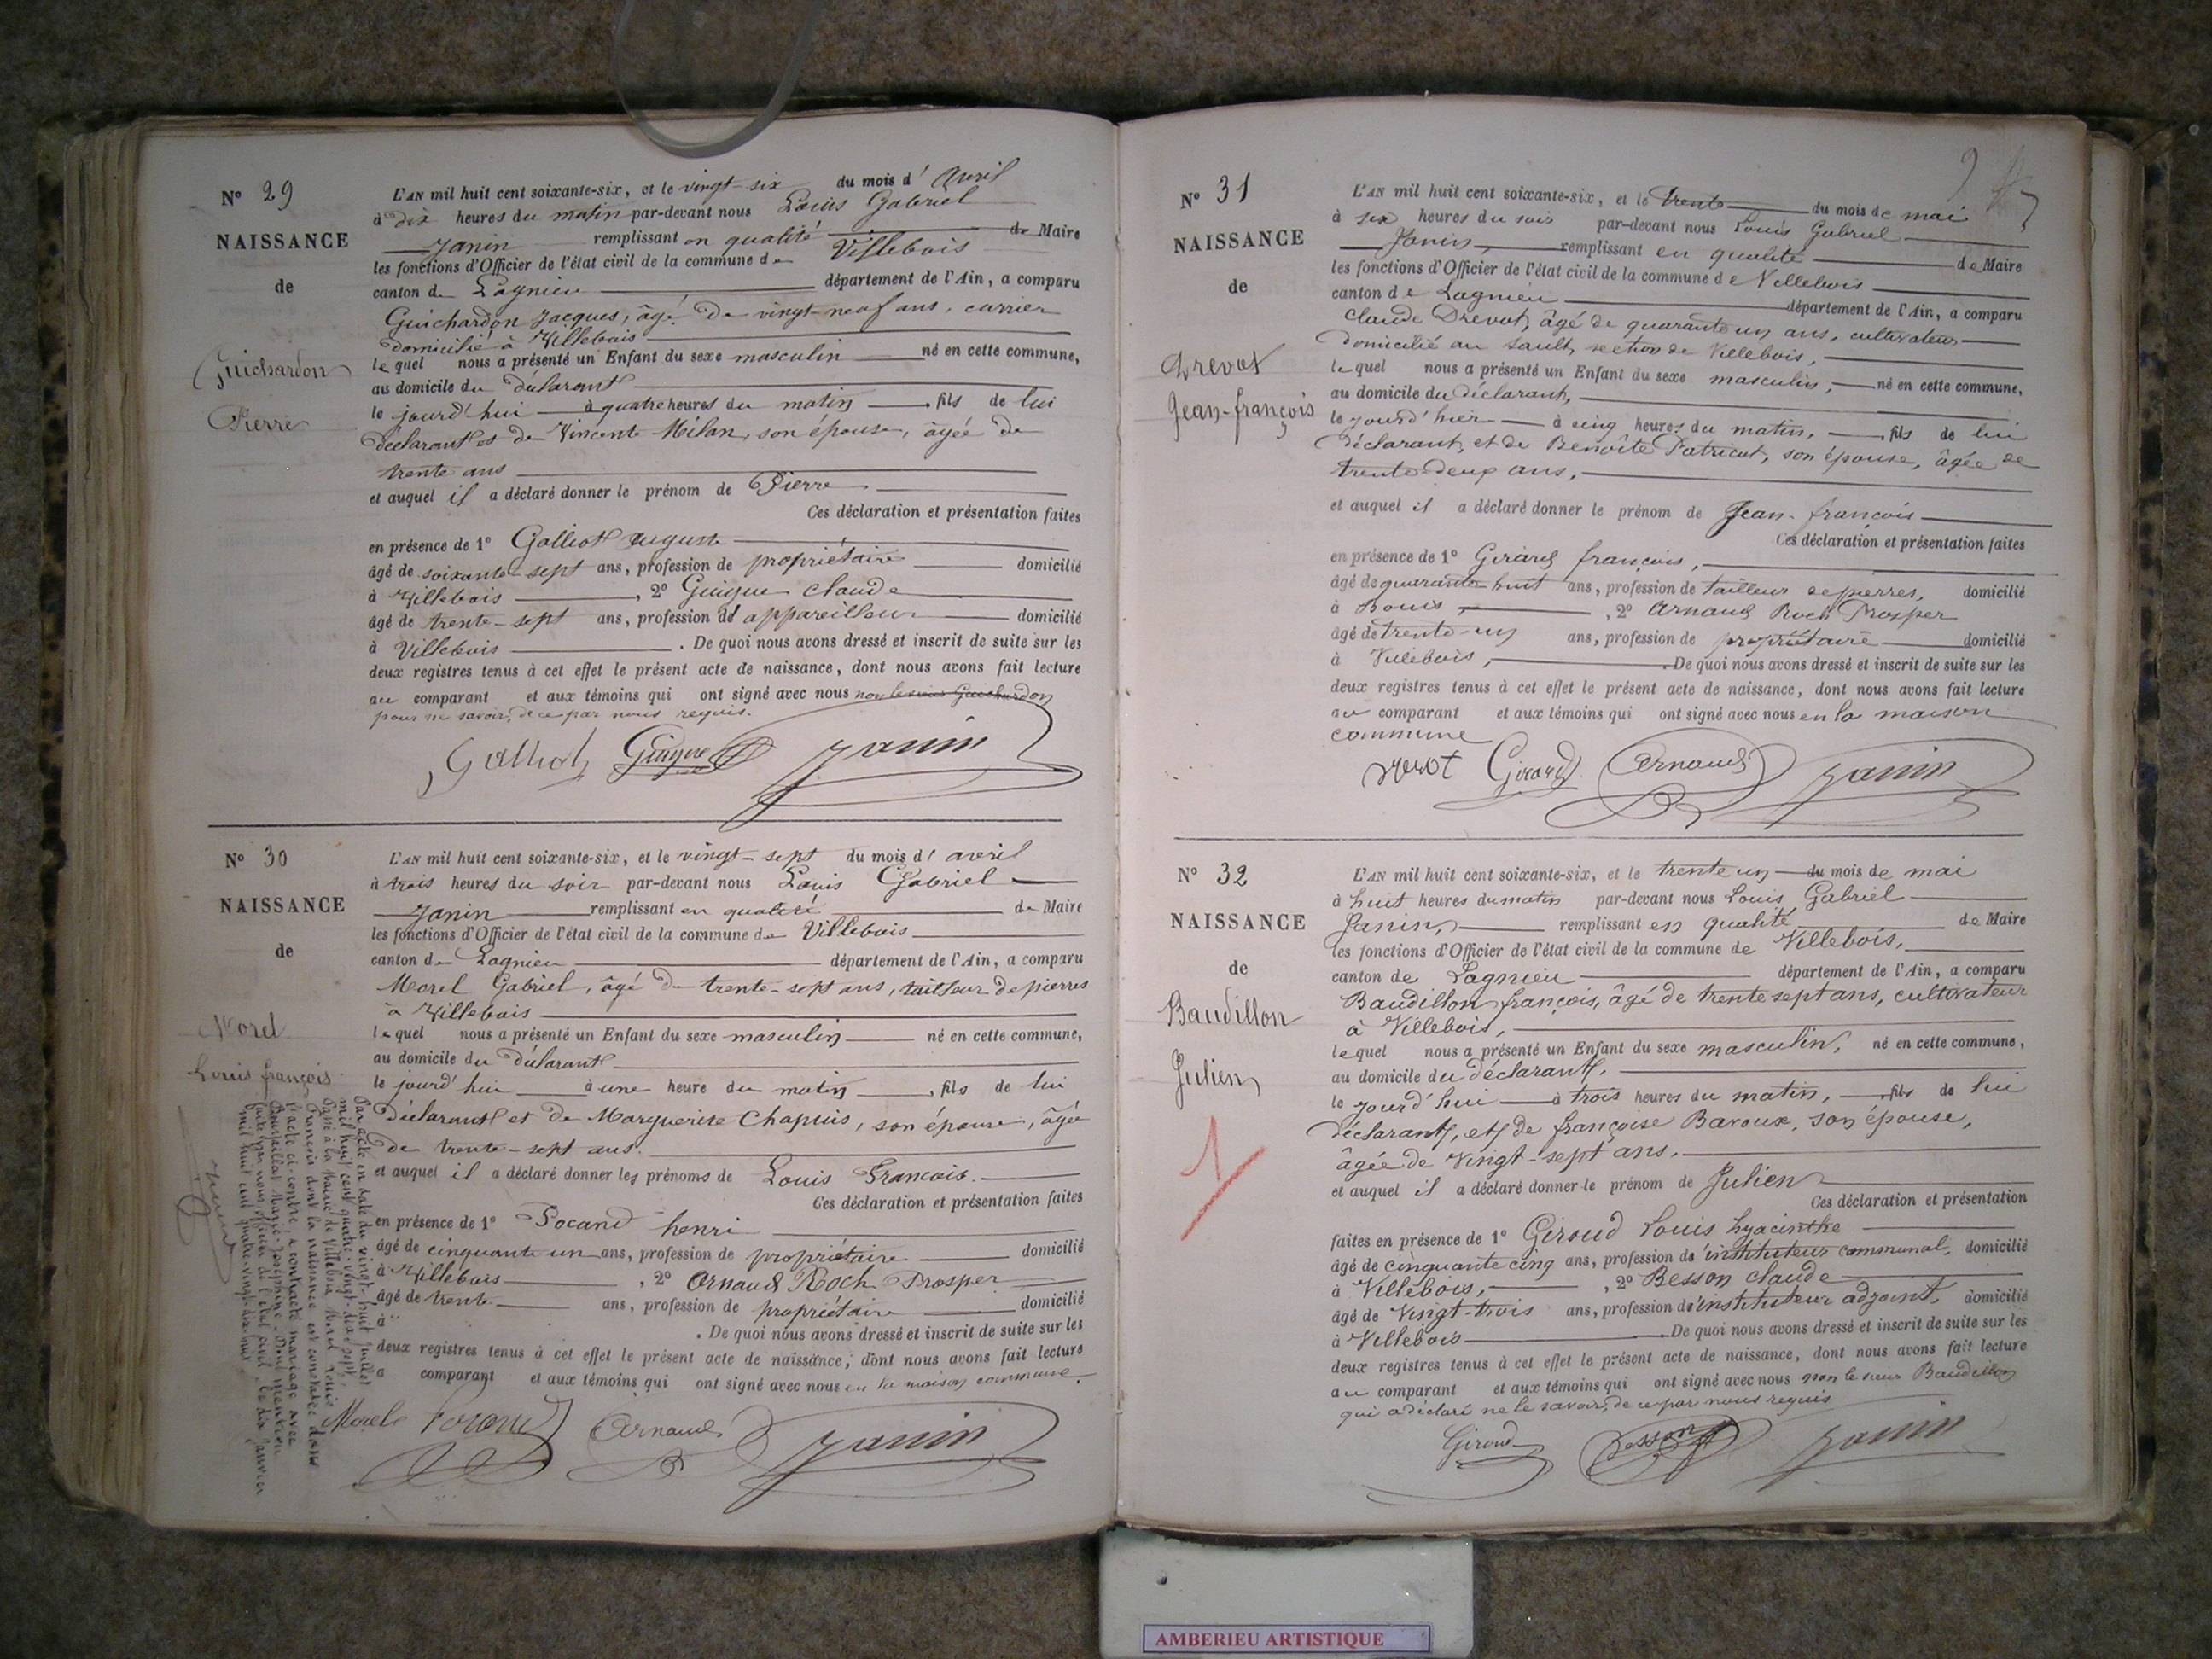 N° 29
NAISSANCE
de
Guichardon
Pierre
L'AN mil huit cent soixante-six, et le vingt-six du mois d'Avril
à dix heures du matin par-devant nous Louis Gabriel
Janin remplissant en qualité de Maire
les fonctions d'Officier de l'état civil de la commune de Villebois
canton de Lagnieu département de l'Ain, a comparu
Guichardon Jacques, âgé de vingt-neuf ans, carrier
domicilié à Villebois
lequel nous a présenté un Enfant du sexe masculin né en cette commune,
au domicile du déclarant
le jourd'hui à quatre heures du matin, fils de lui
déclarant et de Vincente Milan, son épouse, âgée de
trente ans
et auquel il a déclaré donner le prénom de Pierre
Ces déclaration et présentation faites
en présence de 1° Galliot auguste
âgé de soixante-sept ans, profession de propriétaire domicilié
à Villebois, 2° Guigue Claude
âgé de trente-sept ans, profession d'appareilleur domicilié
à Villebois. De quoi nous avons dressé et inscrit de suite sur les
deux registres tenus à cet effet le présent acte de naissance, dont nous avons fait lecture
au comparant et aux témoins qui ont signé avec nous non le sieur Guichardon
pour ne savoir, de ce par nous requis.
Galliot Guigue Janin
N° 30
NAISSANCE
de
Morel
Louis françois
L'AN mil huit cent soixante-six, et le vingt-sept du mois d'avril
à trois heures du soir par-devant nous Louis Gabriel
Janin remplissant en qualité de Maire
les fonctions d'Officier de l'état civil de la commune de Villebois
canton de Lagnieu département de l'Ain, a comparu
Morel Gabriel, âgé de trente-sept ans, tailleur de pierres
à Villebois
lequel nous a présenté un Enfant du sexe masculin né en cette commune,
au domicile du déclarant
le jourd'hui à une heure du matin, fils de lui
déclarant et de Marguerite Chapuis, son épouse, âgée
de trente-sept ans.
et auquel il a déclaré donner les prénoms de Louis François.
Ces déclaration et présentation faites
en présence de 1° Pocand henri
âgé de cinquante un ans, profession de propriétaire domicilié
à Villebois, 2° Arnaud Roch Prosper
âgé de trente ans, profession de propriétaire domicilié
à. De quoi nous avons dressé et inscrit de suite sur les
deux registres tenus à cet effet le présent acte de naissance, dont nous avons fait lecture
a comparant et aux témoins qui ont signé avec nous en la maison commune.
Morel Pocand Arnaud Janin
Par acte en date du vingt-huit juillet
mil huit cent quatre-vingt-dix-sept,
passé à la Mairie de Villebois, Morel Louis
François dont la naissance est constatée dans
l'acte ci-contre, a contracté mariage avec
Marie-Joséphine. Dont mention
faite par nous officier de l'état civil le dix janvier
mil huit cent quatre-vingt-dix-huit.
N° 31
NAISSANCE
de
Drevot
Jean-françois
L'AN mil huit cent soixante-six, et le trente du mois de mai
à six heures du soir par-devant nous Louis Gabriel
Janin, remplissant en qualité de Maire
les fonctions d'Officier de l'état civil de la commune de Villebois
canton de Lagnieu département de l'Ain, a comparu
Claude Drevot, âgé de quarante un ans, cultivateur
domicilié au Sault, section de Villebois,
lequel nous a présenté un Enfant du sexe masculin, né en cette commune,
au domicile du déclarant,
le jourd'hier à cinq heures du matin, fils de lui
déclarant, et de Benoîte Patricot, son épouse, âgée de
trente-deux ans,
et auquel il a déclaré donner le prénom de Jean-françois
Ces déclaration et présentation faites
en présence de 1° Girard françois,
âgé de quarante huit ans, profession de tailleur de pierres, domicilié
à Bouis, 2° Arnaud Roch Prosper
âgé de trente-un ans, profession de propriétaire domicilié
à Villebois,. De quoi nous avons dressé et inscrit de suite sur les
deux registres tenus à cet effet le présent acte de naissance, dont nous avons fait lecture
au comparant et aux témoins qui ont signé avec nous en la maison
commune
Drevot Girard Arnaud Janin
N° 32
NAISSANCE
de
Baudillon
Julien
1
L'AN mil huit cent soixante-six, et le trente un du mois de mai
à huit heures du matin par-devant nous Louis Gabriel
Janin, remplissant en qualité de Maire
les fonctions d'Officier de l'état civil de la commune de Villebois,
canton de Lagnieu département de l'Ain, a comparu
Baudillon françois, âgé de trente sept ans, cultivateur
à Villebois,
lequel nous a présenté un Enfant du sexe masculin, né en cette commune,
au domicile du déclarant,
le jourd'hui à trois heures du matin, fils de lui
déclarant, et de françoise Bavoux, son épouse,
âgée de Vingt-sept ans.
et auquel il a déclaré donner le prénom de Julien
Ces déclaration et présentation
faites en présence de 1° Giroud Louis hyacinthe
âgé de cinquante cinq ans, profession d'instituteur communal, domicilié
à Villebois, 2° Besson Claude
âgé de Vingt-trois ans, profession d'instituteur adjoint, domicilié
à Villebois. De quoi nous avons dressé et inscrit de suite sur les
deux registres tenus à cet effet le présent acte de naissance, dont nous avons fait lecture
au comparant et aux témoins qui ont signé avec nous non le sieur Baudillon
qui a déclaré ne le savoir, de ce par nous requis
Giroud Besson Janin
AMBERIEU ARTISTIQUE